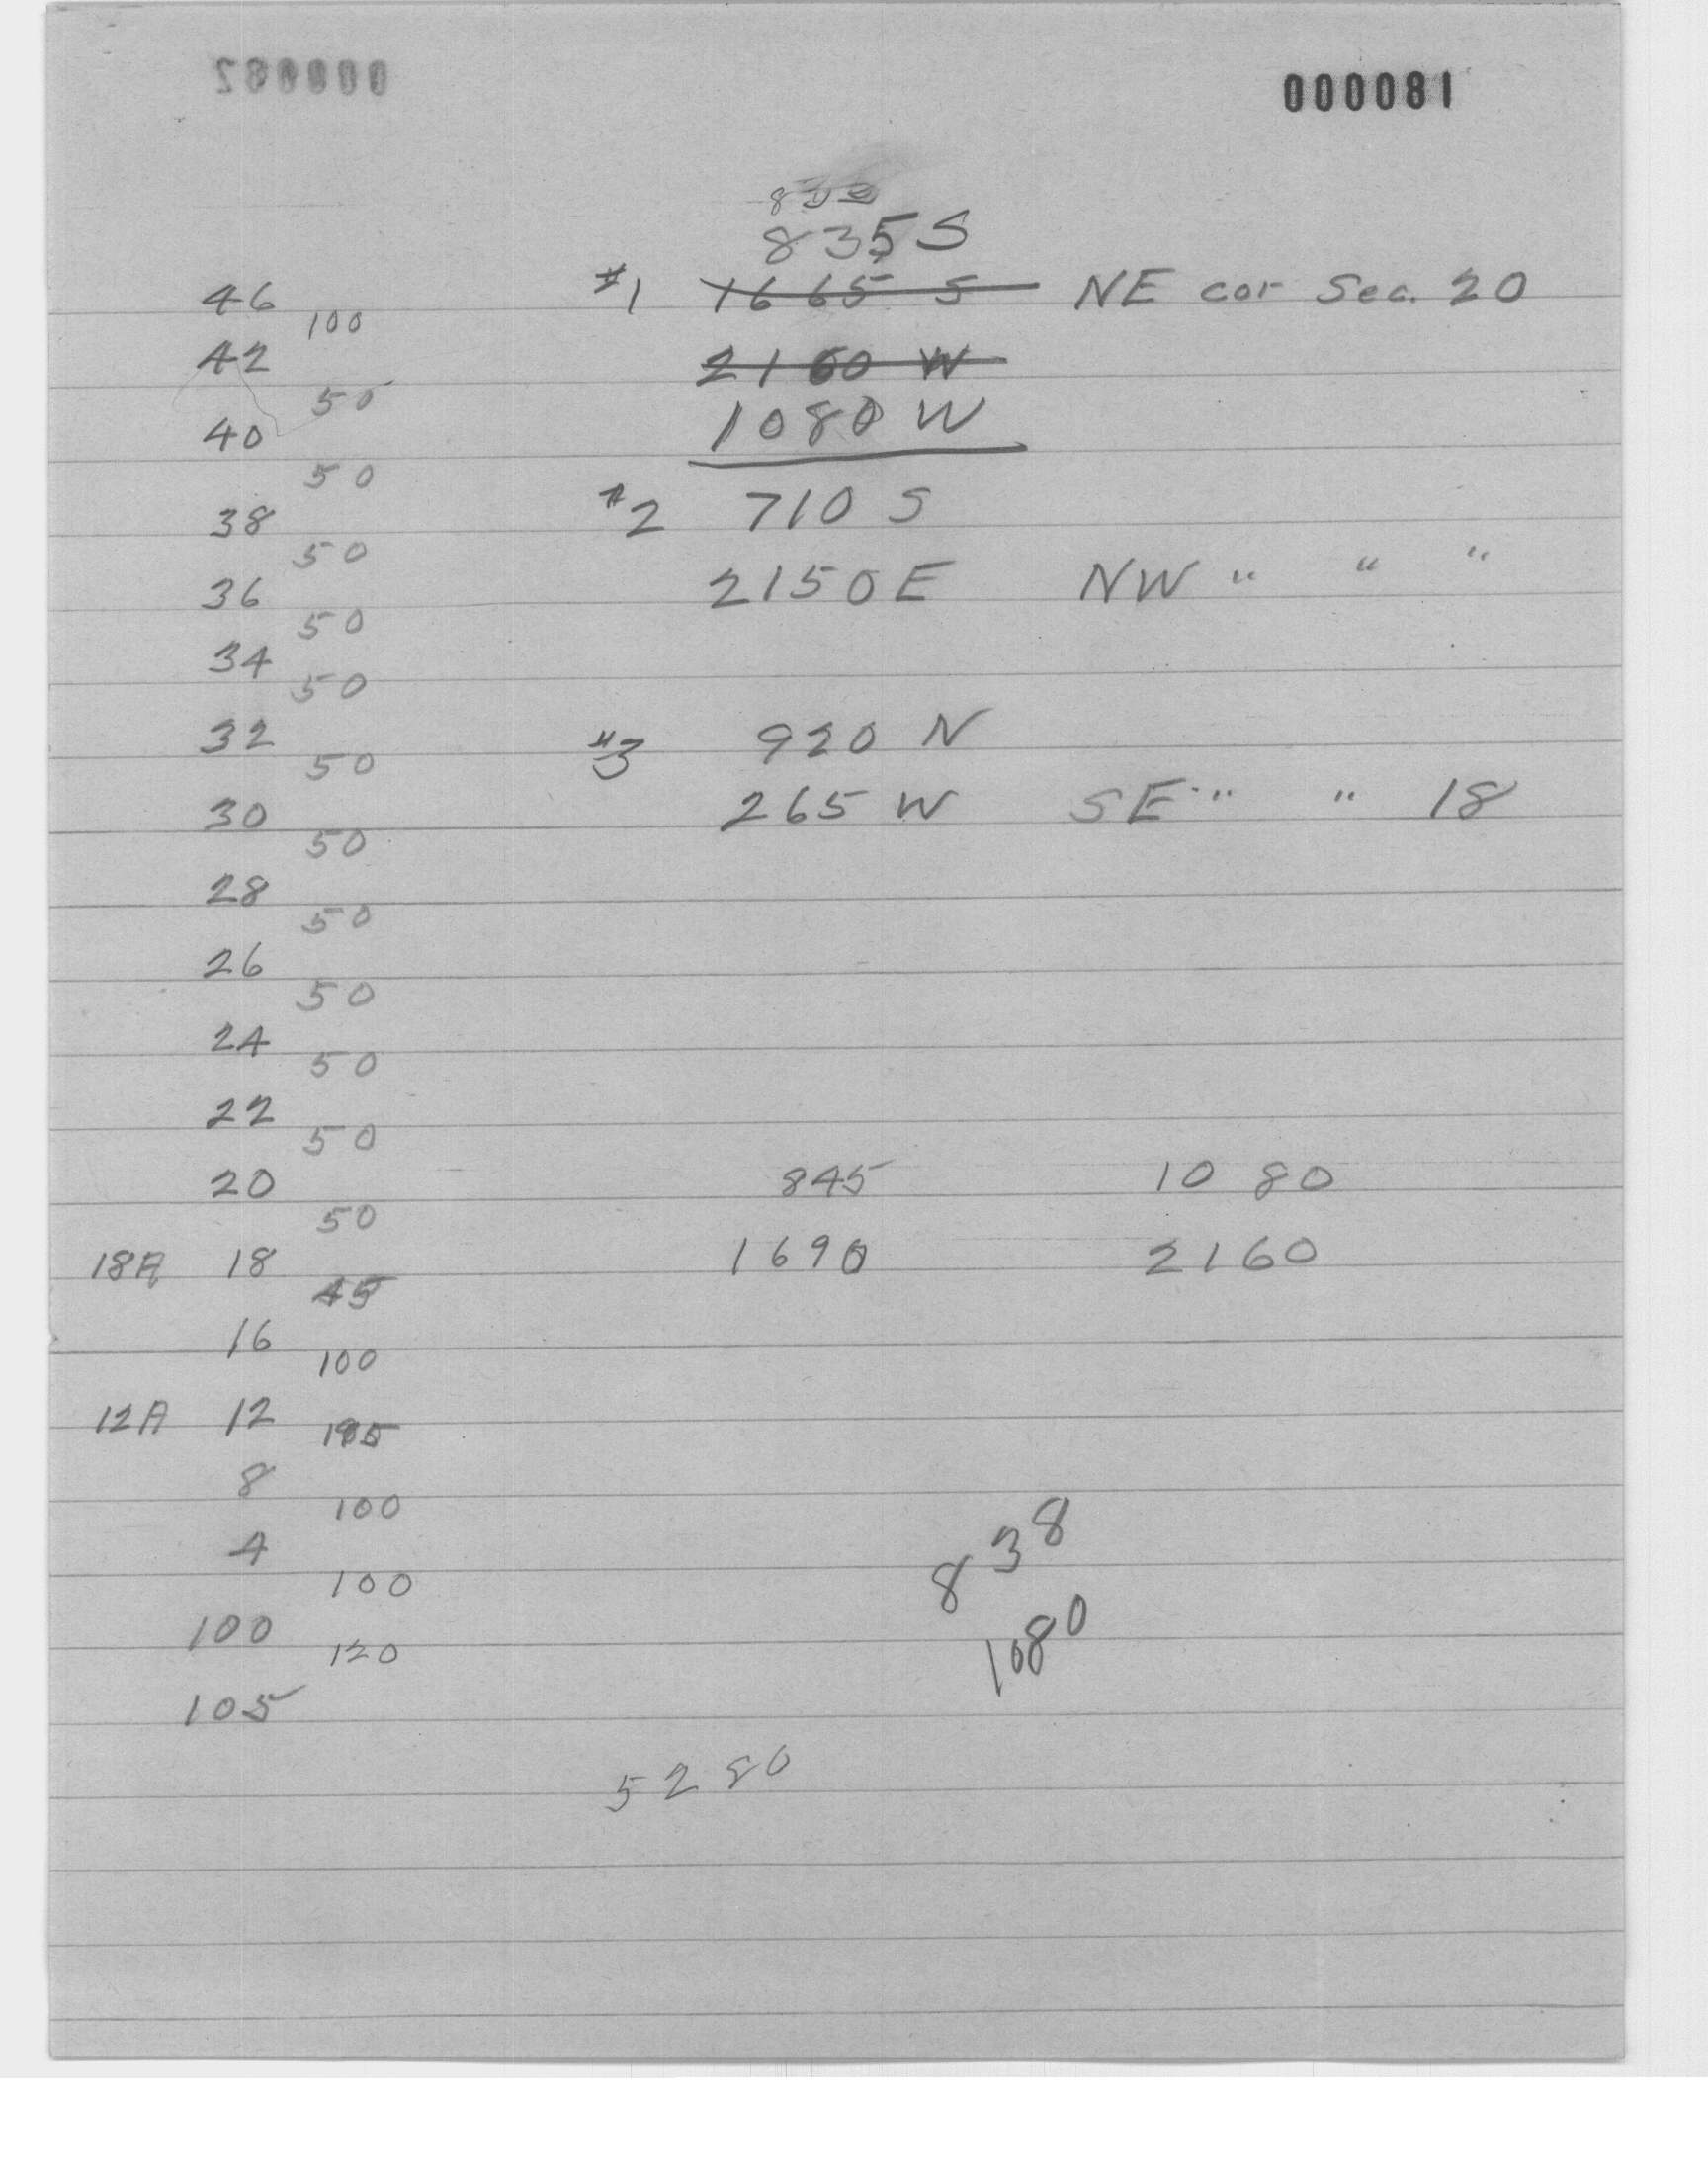 000082 000081
832
835 S
46 #1 1665 S NE cor Sec. 20
100
42 2160 W
50
40 1080 W
50
38 #2 710 S
50
36 2150 E NW " " "
50
34
50
32 #3 920 N
50
30 265 W SE " " 18
50
28
50
26
50
24
50
22
50
20 845 1080
50
18A 18 1690 2160
45
16
100
12A 12
8
100 838
4
100
100 1080
120
105
5280